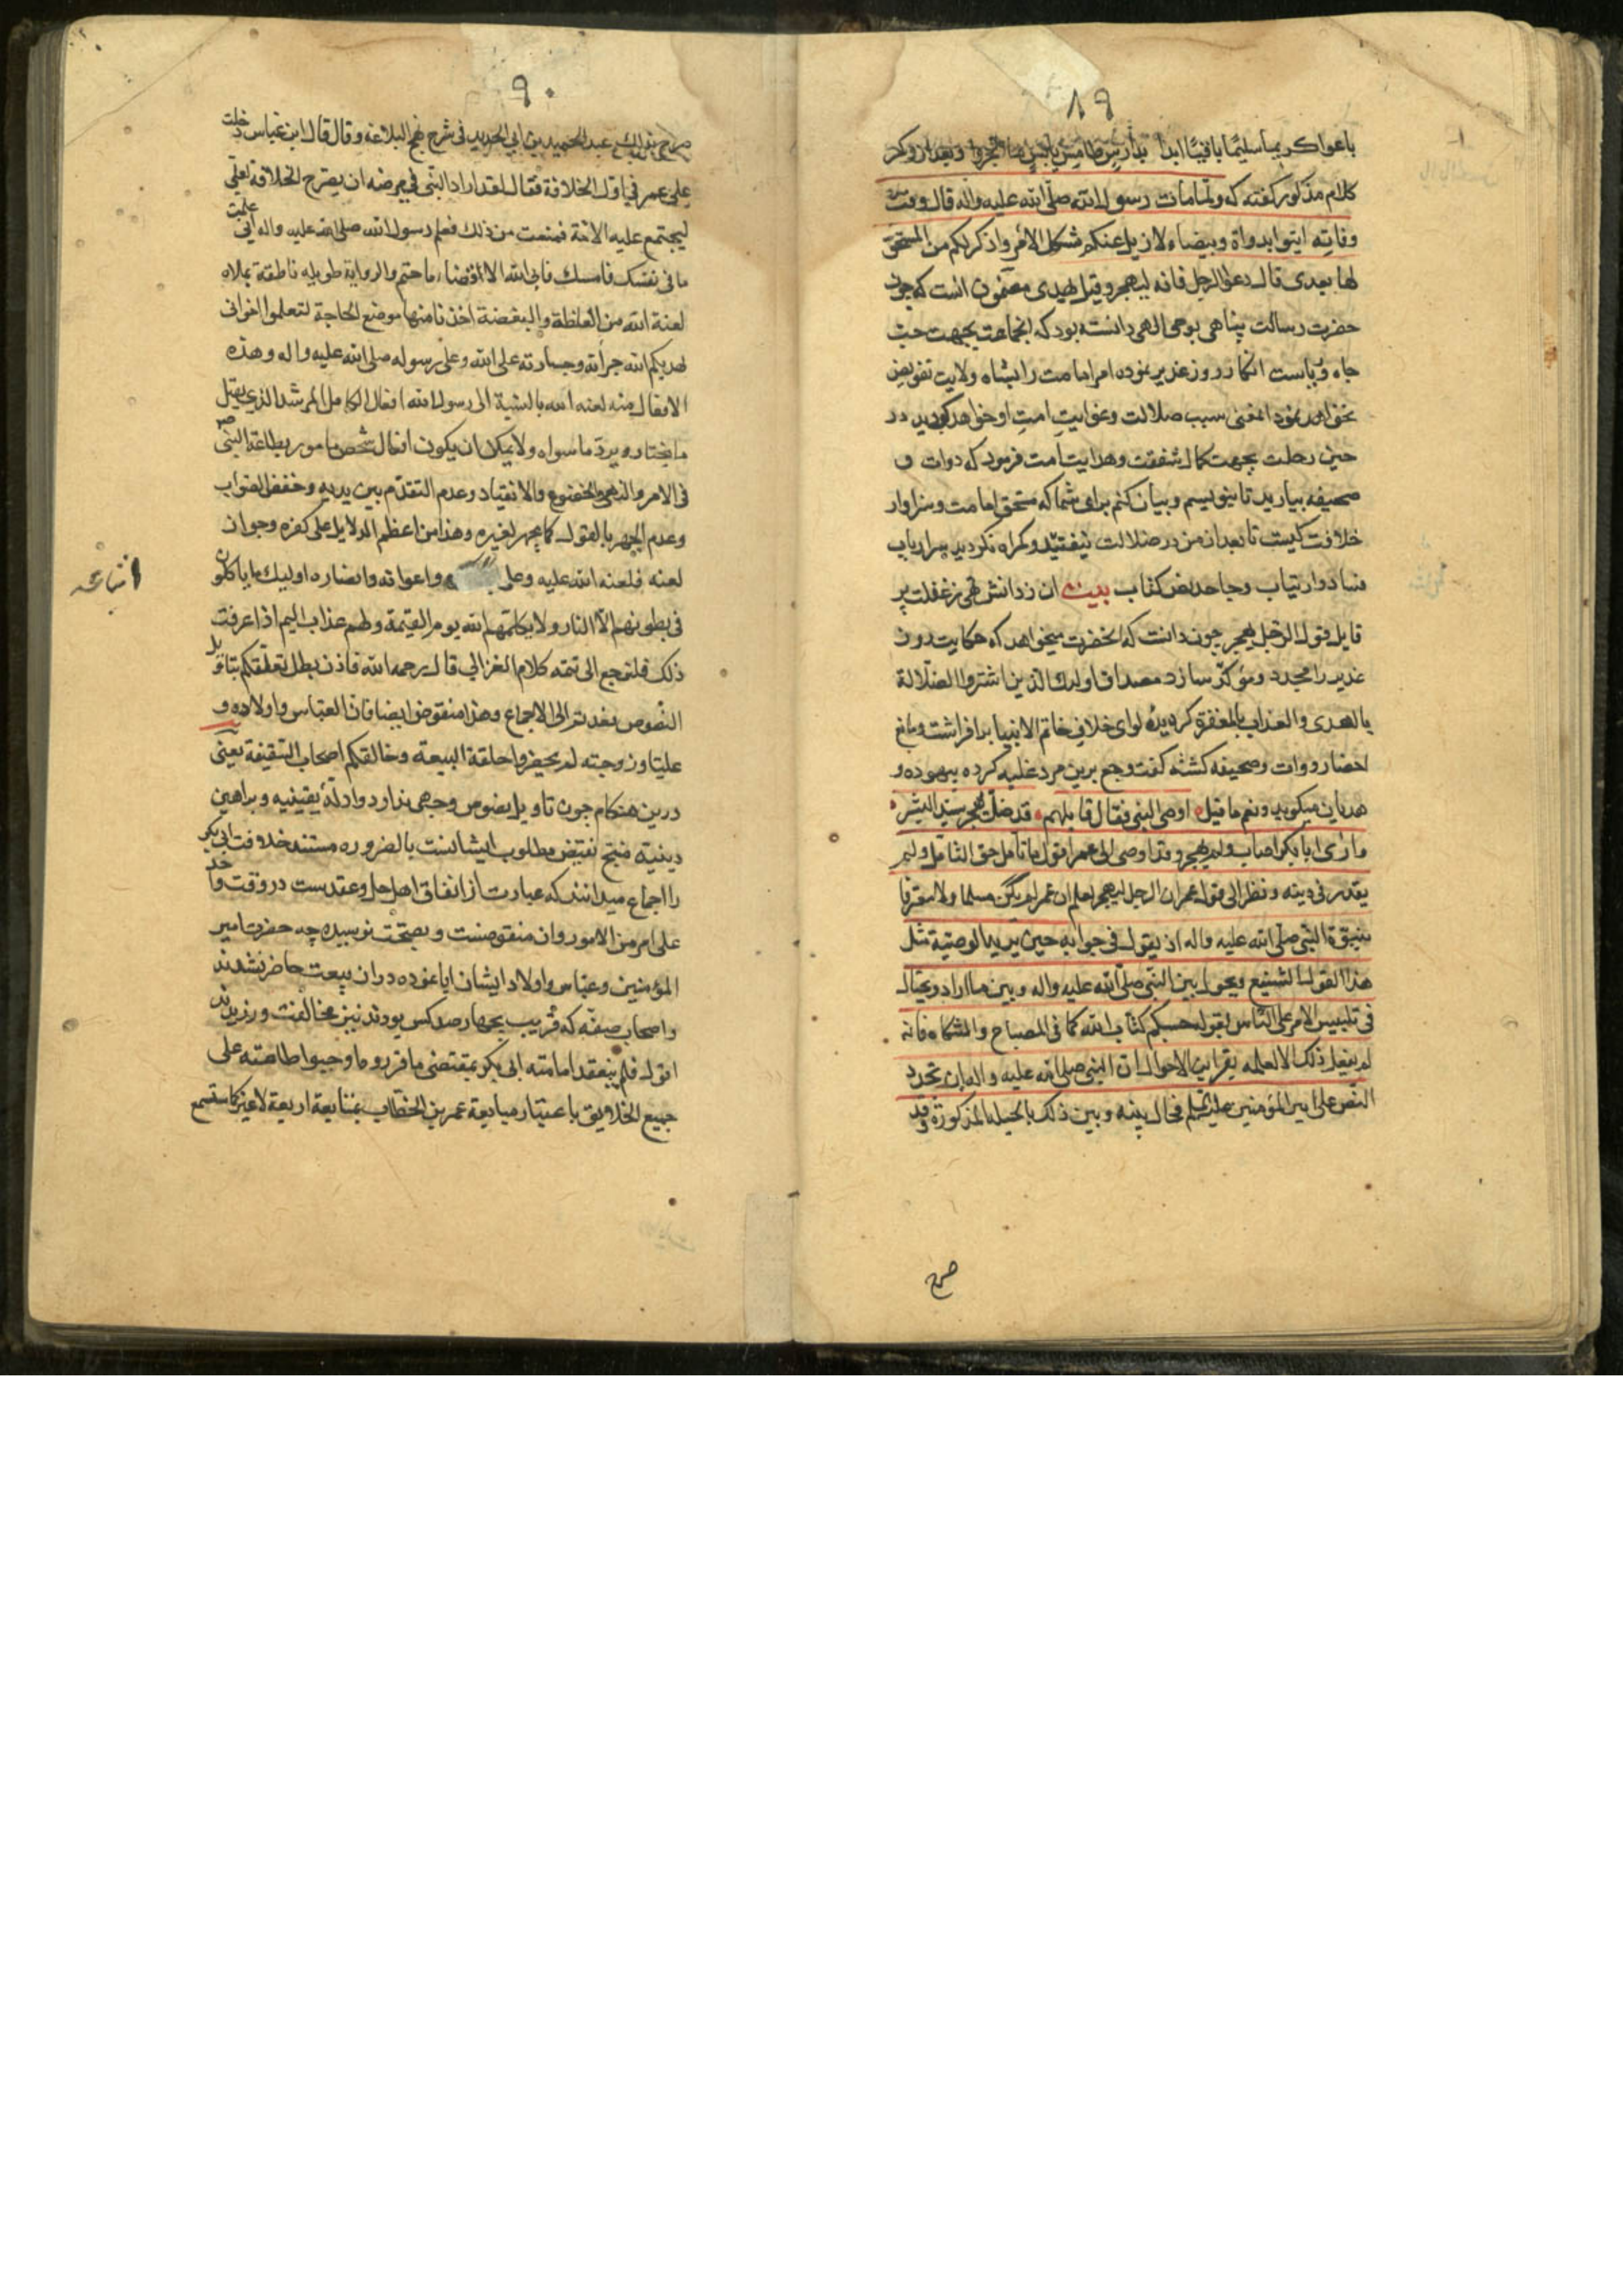 ٨٩
باعوا كريما سليما باقيا ابدا بدارس طامس يا بئس ما اتجروا و بعد از ذكر
كلام مذكور كفته كه ولما مات رسول الله صلى الله عليه واله قال وقت
وفاته ايتوا بدواة وبيضاء لازيل عنكم مشكل الامر واذكر لكم من المستحق
لها بعدى قال دعوا الرجل فانه ليهجر وقيل يهدى مضمون انست كه چون
حضرت رسالت پناهى بوحى الهى دانسته بود كه انجماعت بجهت حب
جاه و رياست انكار روز غدير نموده امر امامت را بشاه ولايت تفويض
نخواهند نمود اينمعنى سبب ضلالت وغوايت امت او خواهد كرديد در
حين رحلت بجهت كمال شفقت وهدايت امت فرمود كه دوات و
صحيفه بياريد تا بنويسم و بيان كنم براى شما كه مستحق امامت و سزاوار
خلافت كيست تا بعد از من در ضلالت نيفتيد و كمراه نكرديد پس ارباب
فساد و ارتياب وجاحد نص كتاب ان ز دانش تهى ز غفلت پر
قايل قول الرجل ليهجر چون دانست كه انحضرت ميخواهد كه حكايت روز
غدير را مجدد و مؤكد سازد مصداق اولئك الذين اشتروا الضلالة
بالهدى والعذاب بالمغفرة كرديده لواى خلاف خاتم الانبيا برافراشت و مانع
احضار دوات وصحيفه كشته كفت وجع برين مرد غلبه كرده بيهوده و
هديان ميكويد ونعم ما قيل اوصى النبى فقال قايلهم قد ضل يهجر سيد البشر
وارى ابا بكر اصاب ولم يهجر وقد اوصى الى عمر اقول ما تامل حق التامل ولم
يقدر فى دينه ونظر الى قول عمر ان الرجل ليهجر لعلم ان عمر لم يكن مسلما ولا معترفا
بنبوة النبى صلى الله عليه واله ان يقول فى جوابه حين يريد الوصية مثل
هذا القول الشنيع ويحول بين النبى صلى الله عليه واله وبين ما اراد ويحتال
فى تلبيس الامر على الناس بقوله حسبكم كتاب الله كما فى المصباح والمشكاه فانه
لم يفعل ذلك الا لعلمه بقراين الاحوال ان النبى صلى الله عليه واله ان تجدد
النص على امير المؤمنين عليه السلم فحال بينه وبين ذلك بالحيل المذكورة وقد
صرح
٩٠
صرح بذلك عبد الحميد بن ابى الحديد فى شرح نهج البلاغه وقال قال ابن عباس دخلت
على عمر فى اول الخلافة فقال لقد اراد النبى فى مرضه ان يصرح الخلافة لعلى
ليجتمع عليه الامة فمنعت من ذلك فعلم رسول الله صلى الله عليه واله انى علمت
ما فى نفسك فامسك فابى الله الا امضاء ما حتم والرواية طويله ناطقة بملاء
لعنة الله من الغلظة والبغضة اخذنا منها موضع الحاجة لتعلموا اخوانى
هديكم الله جراته وجسارته على الله وعلى رسوله صلى الله عليه واله وهذه
الافعال منه لعنه الله بالنسبة الى رسول الله افعال الكامل المرشد الذى يقبل
ما يختار ويرد ما سواه ولا يمكن ان يكون افعال شخص مامور بطاعة النبى ص
فى الامر والنهى والخضوع والانقياد وعدم التقدم بين يديه وخفض الصوات
وعدم الجهر بالقول كما يجهر لغيره وهذا من اعظم الدلايل على كفره وجواز
لعنه فلعنه الله عليه وعلى واعوانه وانصاره اوليك ما ياكلون
فى بطونهم الا النار ولا يكلمهم الله يوم القيمة ولهم عذاب اليم اذا عرفت
ذلك فلنرجع الى تتمه كلام الغزالى قال رحمه الله فاذن بطل تعلقكم بتاويل
النصوص فعدتم الى الاجماع وهذا منقوض ايضا فان العباس واولاده و
عليا وزوجته لم يحضروا حلقة البيعة وخالفكم اصحاب السقيفة يعنى
درين هنكام چون تاويل نصوص وجهى ندارد وادلة يقينيه وبراهين
دينيه منتج نقيض مطلوب ايشانست بالضروره مستند خلافت ابى بكر
را اجماع ميدانند كه عبارت از اتفاق اهل حل وعقدست در وقت واحد
على امر من الامور وان منقوضست وبصحت نرسيده چه حضرت امير
المؤمنين وعباس واولاد ايشان ابا نموده در ان بيعت حاضر نشدند
واصحاب صفه كه قريب بچهار صد كس بودند نيز مخالفت ورزيدند
اقول فلم ينعقد امامته ابى بكر بمقتضى ما قرروه وما وجبوا طاعته على
جميع الخلايق باعتبار مبايعة عمر بن الخطاب بمتابعة اربعة لا غير كما ستسمع